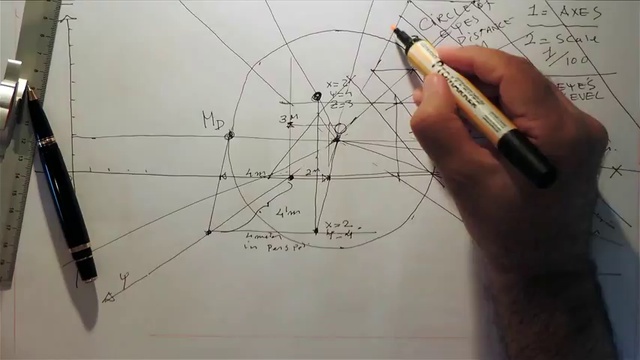 CIRCLE OF
EYES
DISTANCE
1 = AXES
2 = Scale
1/100
EYE'S
LEVEL
X=2
Y=4
Z=3
3M
MD
4m
2m
4m
X=2
Y=4
in persp
Y